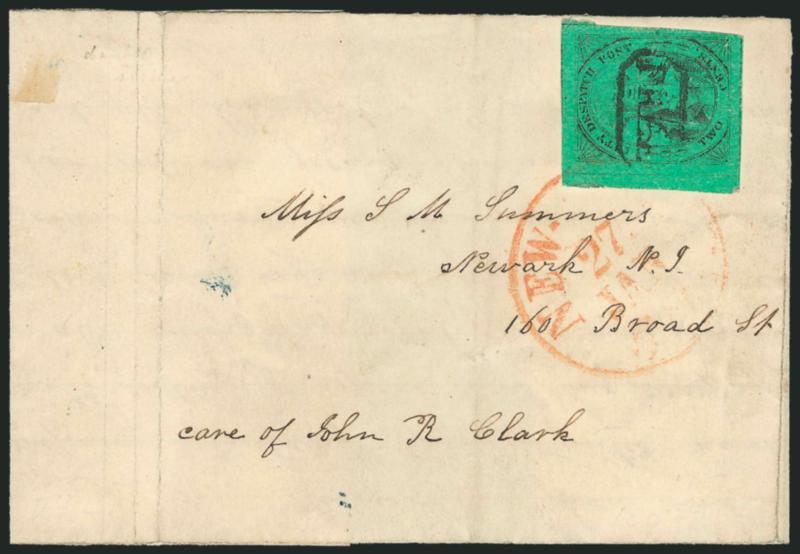 TY DESPATCH POST
TWO CENTS
Miss S M Summers
Newark N.J.
160 Broad St
care of John R Clark
NEW
27
JAN